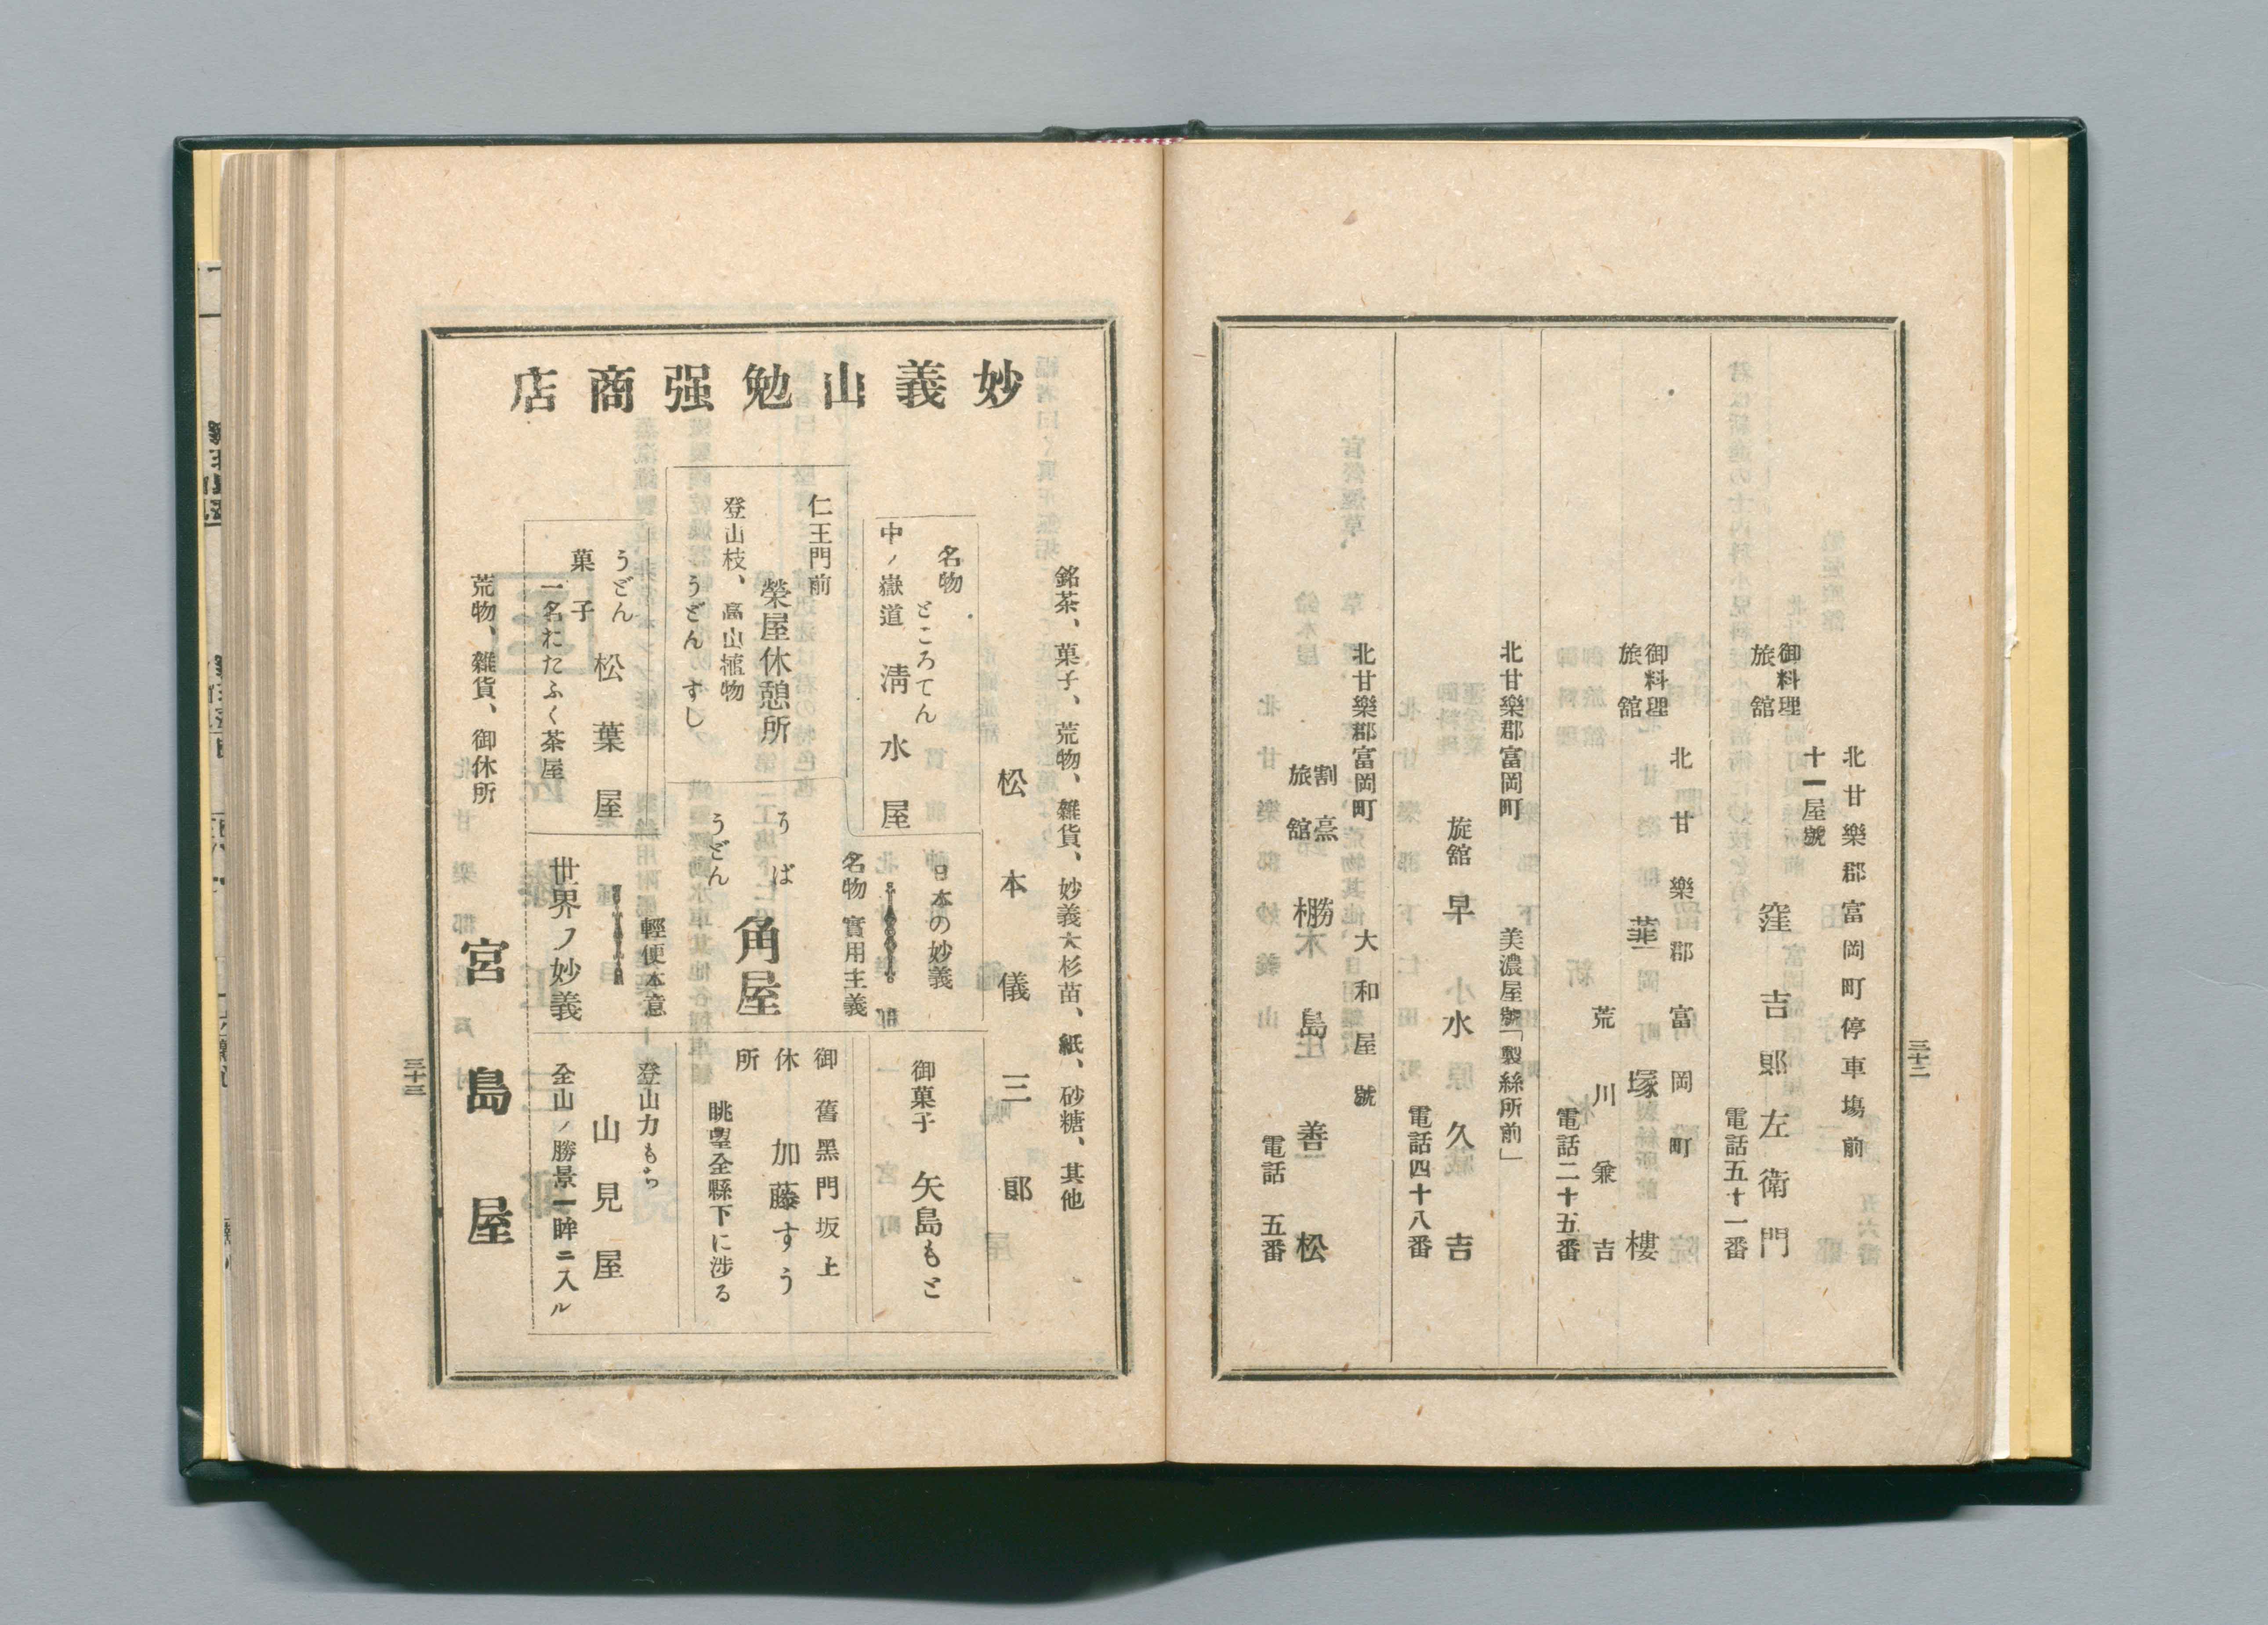 北甘樂郡富岡町停車塲前
十一屋號
御料理
旅館
窪吉郎左衛門
電話五十一番
北甘樂郡富岡町
御料理
旅館
韮塚樓
荒川粂吉
電話二十五番
北甘樂郡富岡町
美濃屋號「製絲所前」
旋舘
早水原久吉
電話四十八番
北甘樂郡富岡町
大和屋號
割烹
旅舘
棚島善松
電話五番
三十二
妙義山勉强商店
銘茶、菓子、荒物、雜貨、妙義大杉苗、紙、砂糖、其他
松本儀三郎
名物
ところてん
中ノ嶽道
淸水屋
仁王門前
榮屋休憩所
登山枝、高山植物
うどんすし
うどん
菓子
松葉屋
一名おたふく茶屋
日本の妙義
名物
實用主義
そば
うどん
角屋
輕便本意
世界ノ妙義
御菓子
矢島もと
御休所
舊黑門坂上
加藤すう
眺望全縣下に涉る
登山力もち
山見屋
全山ノ勝景一眸ニ入ル
荒物、雜貨、御休所
宮島屋
三十三